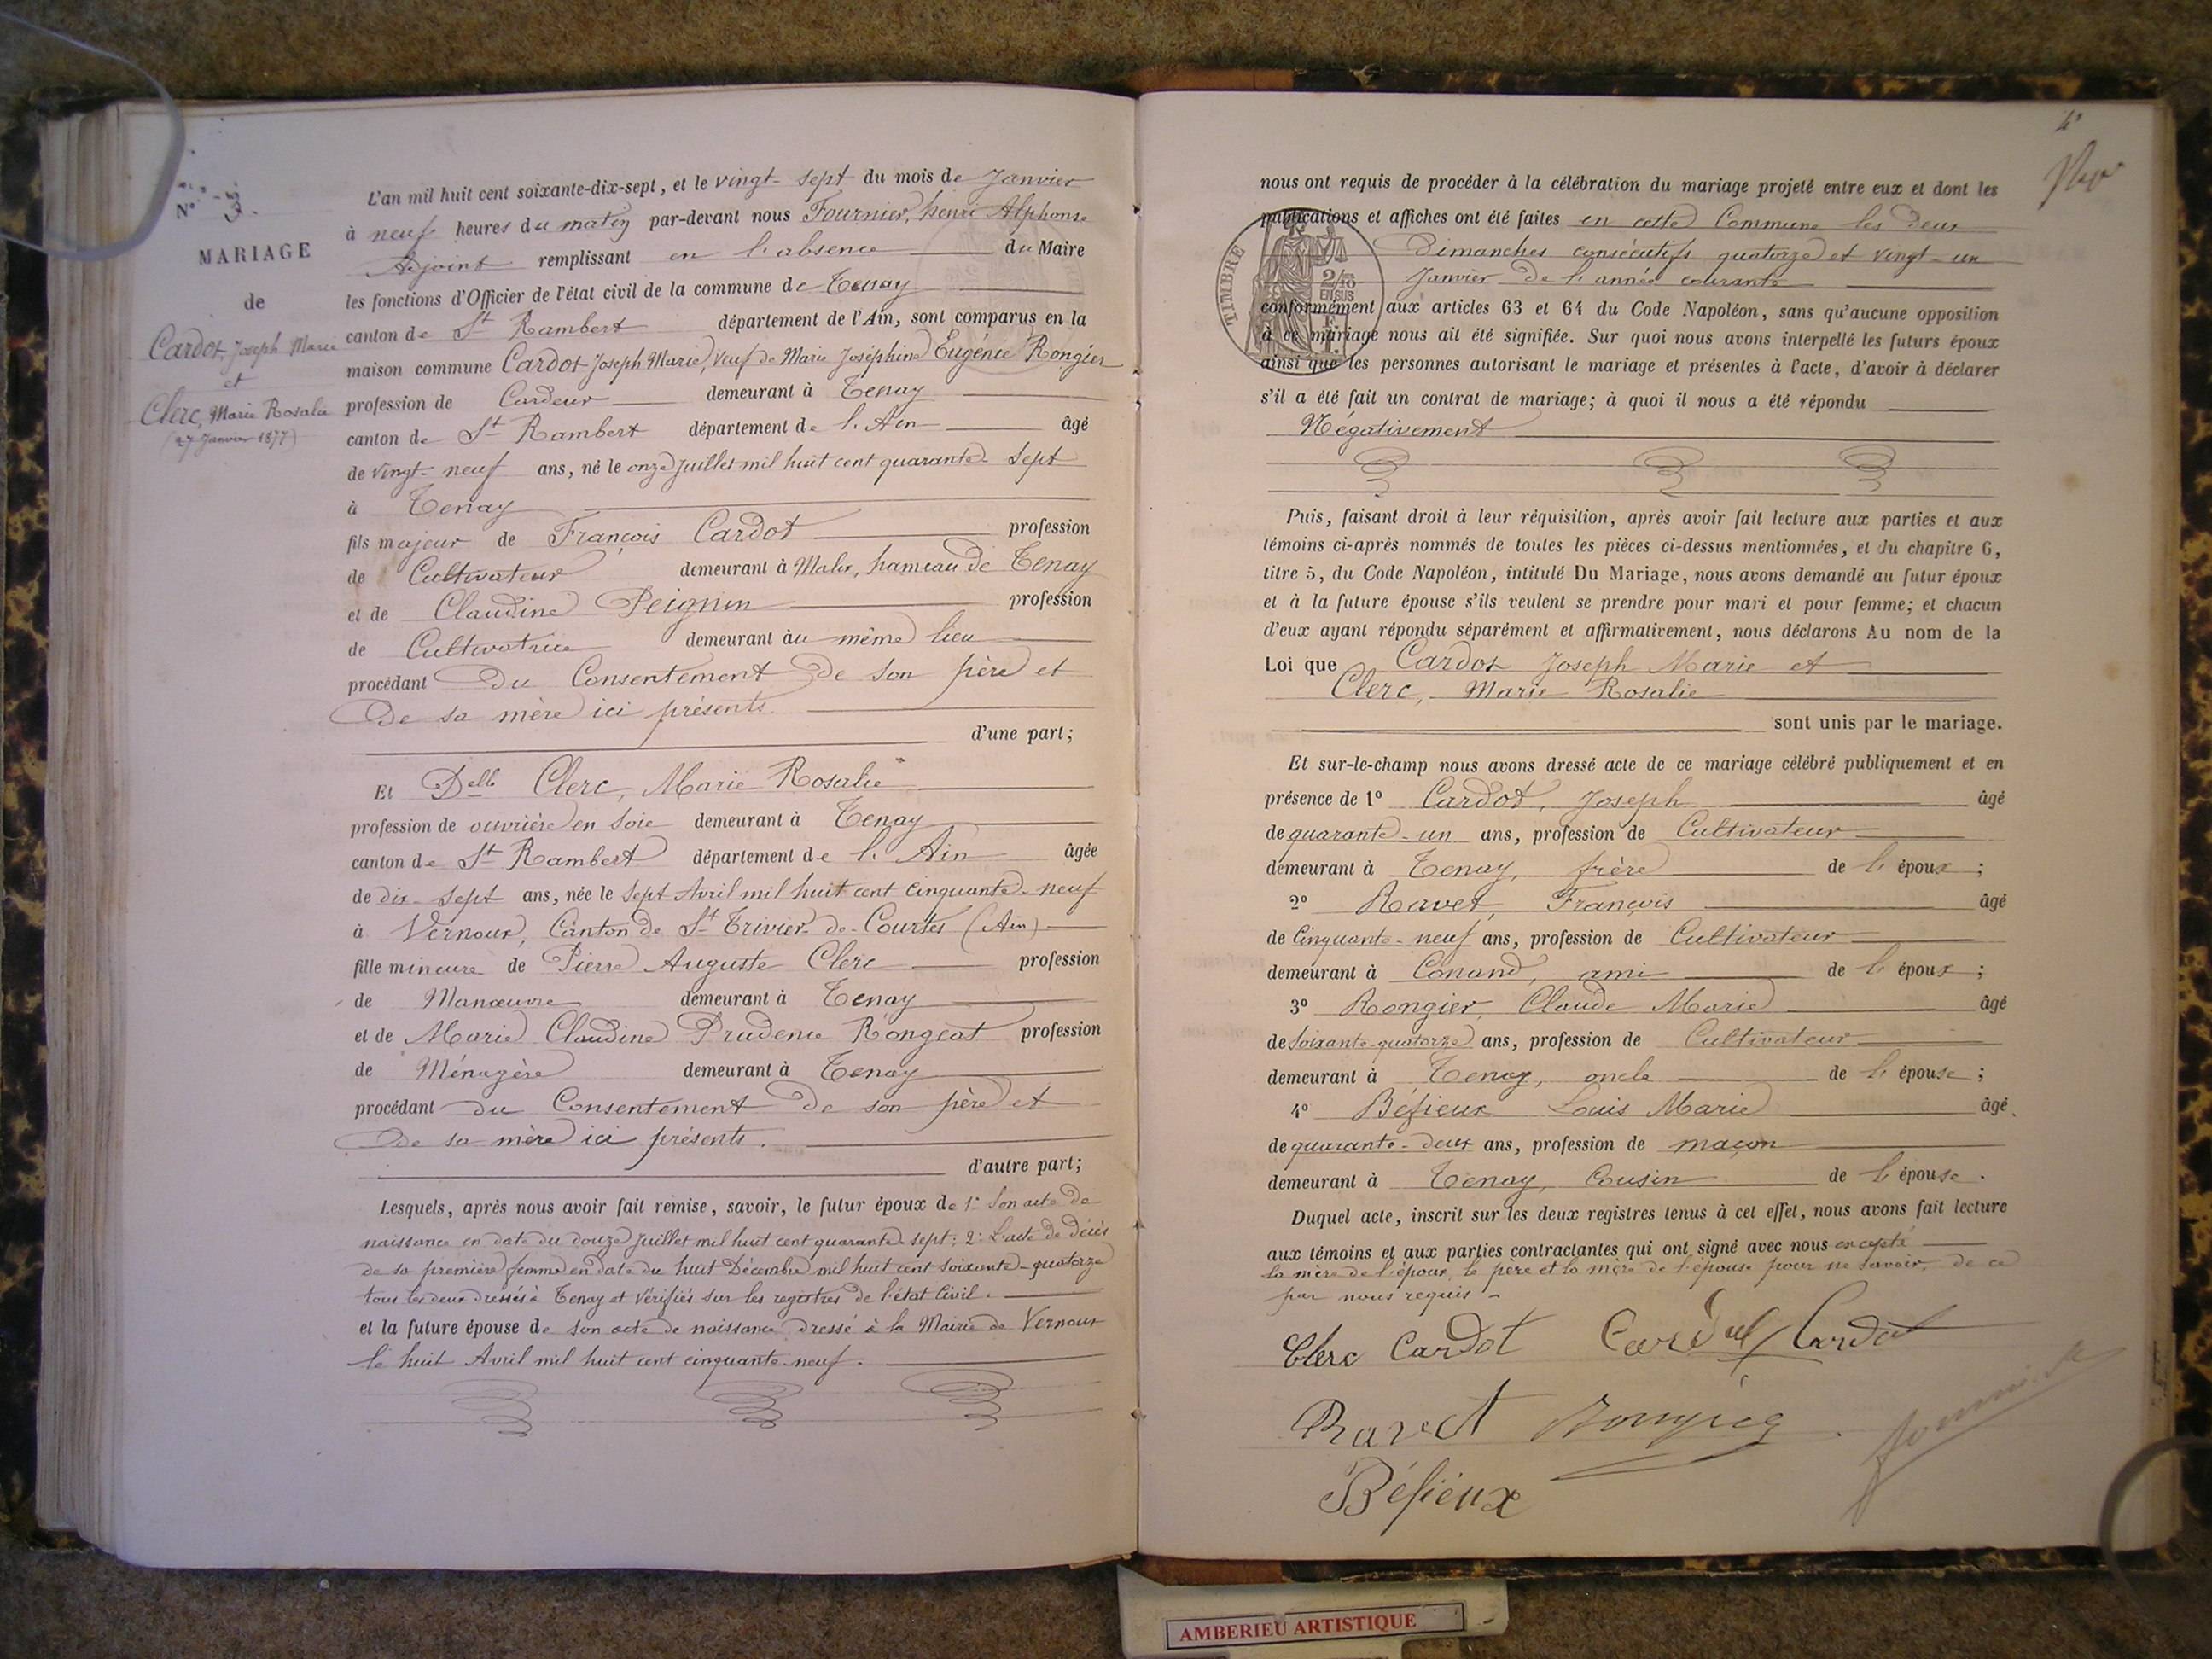 Nº 3.
MARIAGE
de
Cardot, Joseph Marie
et
Clerc, Marie Rosalie
(27 Janvier 1877)
L'an mil huit cent soixante-dix-sept, et le vingt-sept du mois de Janvier
à neuf heures du matin par-devant nous Fournier, henri Alphonse
Adjoint remplissant en l'absence du Maire
les fonctions d'Officier de l'état civil de la commune de Tenay
canton de St Rambert département de l'Ain, sont comparus en la
maison commune Cardot Joseph Marie, veuf de Marie Joséphine Eugénie Rongier
profession de Cardeur demeurant à Tenay
canton de St Rambert département de l'Ain âgé
de vingt-neuf ans, né le onze Juillet mil huit cent quarante-sept
à Tenay
fils majeur de François Cardot profession
de Cultivateur demeurant à Malix, hameau de Tenay
et de Claudine Peignin profession
de Cultivatrice demeurant au même lieu
procédant du Consentement de son père et
de sa mère ici présents.
d'une part;
Et Delle Clerc, Marie Rosalie
profession de ouvrière en soie demeurant à Tenay
canton de St Rambert département de l'Ain âgée
de dix-sept ans, née le sept Avril mil huit cent cinquante-neuf
à Vernoux, Canton de St Trivier-de-Courtes (Ain)
fille mineure de Pierre Auguste Clerc profession
de Manœuvre demeurant à Tenay
et de Marie Claudine Prudence Rongeat profession
de Ménagère demeurant à Tenay
procédant du Consentement de son père et
de sa mère ici présents.
d'autre part;
Lesquels, après nous avoir fait remise, savoir, le futur époux de 1º Son acte de
naissance en date du douze Juillet mil huit cent quarante-sept; 2º L'acte de décès
de sa première femme en date du huit Décembre mil huit cent soixante-quatorze
tous les deux dressés à Tenay et vérifiés sur les registres de l'état civil.
et la future épouse de son acte de naissance dressé à la Mairie de Vernoux
le huit Avril mil huit cent cinquante-neuf.
4
nous ont requis de procéder à la célébration du mariage projeté entre eux et dont les
publications et affiches ont été faites en cette Commune les deux
Dimanches consécutifs quatorze et vingt-un
Janvier de l'année courante
TIMBRE
2/10
EN SUS
conformément aux articles 63 et 64 du Code Napoléon, sans qu'aucune opposition
à ce mariage nous ait été signifiée. Sur quoi nous avons interpellé les futurs époux
ainsi que les personnes autorisant le mariage et présentes à l'acte, d'avoir à déclarer
s'il a été fait un contrat de mariage; à quoi il nous a été répondu
Négativement
Puis, faisant droit à leur réquisition, après avoir fait lecture aux parties et aux
témoins ci-après nommés de toutes les pièces ci-dessus mentionnées, et du chapitre 6,
titre 5, du Code Napoléon, intitulé Du Mariage, nous avons demandé au futur époux
et à la future épouse s'ils veulent se prendre pour mari et pour femme; et chacun
d'eux ayant répondu séparément et affirmativement, nous déclarons Au nom de la
Loi que Cardot Joseph Marie et
Clerc, Marie Rosalie
sont unis par le mariage.
Et sur-le-champ nous avons dressé acte de ce mariage célébré publiquement et en
présence de 1º Cardot, Joseph âgé
de quarante-un ans, profession de Cultivateur
demeurant à Tenay, frère de l'époux ;
2º Ravet, François âgé
de Cinquante-neuf ans, profession de Cultivateur
demeurant à Conand, ami de l'époux ;
3º Rongier, Claude Marie âgé
de soixante-quatorze ans, profession de Cultivateur
demeurant à Tenay, oncle de l'épouse ;
4º Béfieux Louis Marie âgé
de quarante-deux ans, profession de maçon
demeurant à Tenay, Cousin de l'épouse.
Duquel acte, inscrit sur les deux registres tenus à cet effet, nous avons fait lecture
aux témoins et aux parties contractantes qui ont signé avec nous excepté
la mère de l'époux, le père et la mère de l'épouse pour ne savoir, de ce
par nous requis
Clerc Cardot Cardot Cardot
Ravet
Béfieux
AMBERIEU ARTISTIQUE